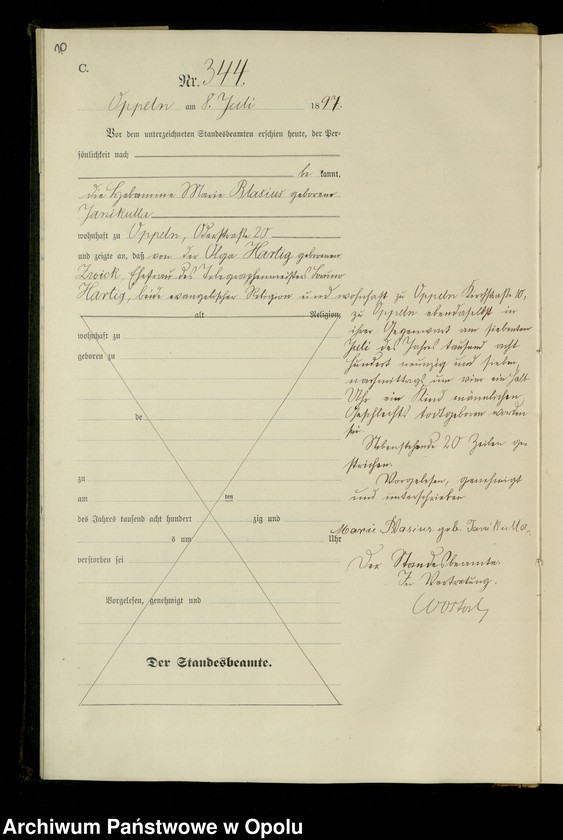 C.
Nr. 344.
Oppeln am 8. Juli 1897.
Vor dem unterzeichneten Standesbeamten erschien heute, der Per-
sönlichkeit nach
be kannt,
die Hebamme Marie Blasius geborene
Janikulla
wohnhaft zu Oppeln, Oderstraße 20
und zeigte an, daß von der Olga Hartig geborenen
Zwick, Ehefrau des Telegraphenmeisters
Hartig, beide evangelischer Religion und wohnhaft zu Oppeln Kirchstraße 10,
alt Religion,
wohnhaft zu
geboren zu
de
zu
am ten
des Jahres tausend acht hundert zig und
s um Uhr
verstorben sei
Vorgelesen, genehmigt und
Der Standesbeamte.
zu Oppeln ebendaselbst in
ihrer Gegenwart am siebenten
Juli des Jahres tausend acht
hundert neunzig und sieben
nachmittags um vier ein halb
Uhr ein Kind männlichen
Geschlechts todtgeboren worden
sei
Nebenstehende 20 Zeilen ge-
strichen.
Vorgelesen, genehmigt
und unterschrieben
Marie Blasius geb. Janikulla.
Der Standesbeamte.
In Vertretung.
Archiwum Państwowe w Opolu